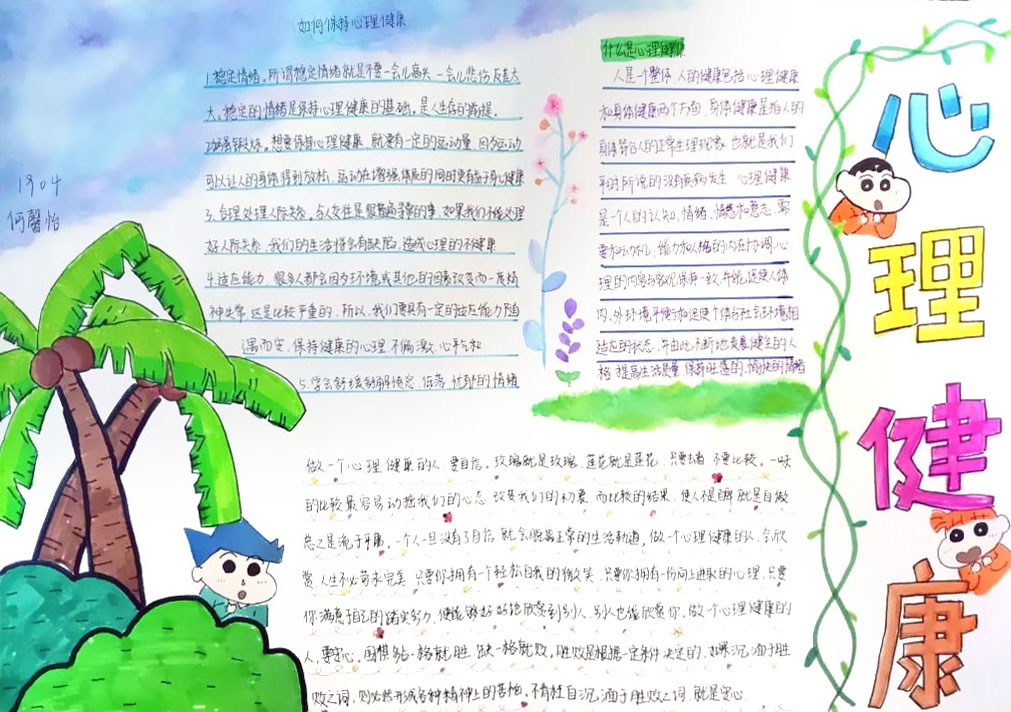 如何保持心理健康
1.稳定情绪。所谓稳定情绪就是不要一会儿高兴一会儿悲伤反差太
大。稳定的情绪是保持心理健康的基础。是人生存的前提。
想要保持心理健康就要有一定的运动量因为运动
可以让人的身体得到放松。运动在增强体质的同时更有益于身心健康
3.合理处理人际关系。与人交往是很普通寻常的事如果我们不能处理
好人际关系。我们的生活将会有缺陷。造成心理的不健康
4.适应能力。很多人都会因为环境或其他的因素改变而一度精
神失常这是比较严重的。所以我们要具有一定的适应能力随
遇而安。保持健康的心理不偏激心平气和
5.学会舒缓低落忧郁的情绪
什么是心理健康
人是一个整体人的健康包括心理健康
和身体健康两个方面身体健康是指人的
身体符合人的正常生理现象也就是我们
平时所说的没有疾病发生心理健康
是个人的认知、情绪、情感和意志、需
要和动机、能力和人格的内在协调。心
理的内容与客观保持一致。并能促使人体
内、外环境平衡和促使个体与社会环境相
适应的状态。并由此不断地发展健全的人
格提高生活质量保持旺盛的、愉快的情绪
1904
何馨怡
做一个心理健康的人要自信。玫瑰就是玫瑰莲花就是莲花只要去看不要比较。一味
的比较最容易动摇我们的心态改变我们的初衷而比较的结果使人不是自卑就是自傲
总之是流于平庸。一个人一旦没有了自信就会脱离正常的生活轨道。做一个心理健康的人会欣
赏人生不必苛求完美只要你拥有一个轻松自我的微笑只要你拥有一份向上进取的心理只要
你满意于自己的踏实努力便能够好好地欣赏到别人别人也能欣赏你。做一个心理健康的
人要宽心。围棋多占一格就胜缺一格就败胜败是根据一定条件决定的如果沉湎于胜
败之词则必然形成各种精神上的苦恼不有社自沉湎于胜败之词就是宽心
心理健康